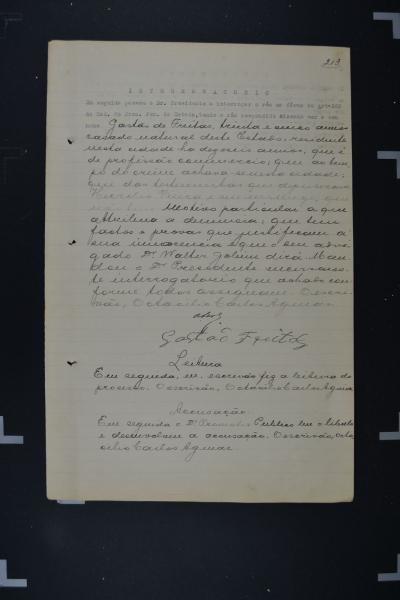 213
INTERROGATORIO
Em seguida passou o Dr. Presidente a interrogar o réo na forma do artigo
do Cod. do Proc. Pen. do Estado, tendo o réo respondido dizendo ser e cha
mar Gastão de Freitas, trinta e cinco annos,
casado natural deste Estado, residente
nesta cidade ha dezoito annos, que é
de profissão commercio; que ao tem
po do crime achava-se nesta cidade;
que das testemunhas que depuseram
Motivo particular a que
attribua a denuncia; que tem
factos e provas que justificam a
sua innocencia e que o seu advo
gado Dr. Walter Jobim dirá. Man
dou o Dr. Presidente encerrar es
te interrogatorio que achado con
forme, todos assignam. O escri
vão, Octacilio Carlos Aguiar
Gastão Freitas
Leitura
Em seguida, eu escrivão fiz a leitura do
processo. O escrivão, Octacilio Carlos Aguiar
Accusação
Em seguida o Dr. Promotor Publico leu o libello
e desenvolveu a accusação. O escrivão, Octa
cilio Carlos Aguiar